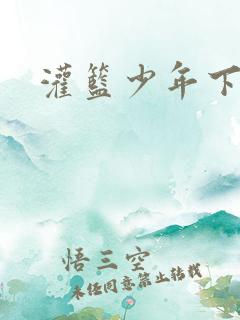 灌籃少年下
悟三空
未经同意禁止转载